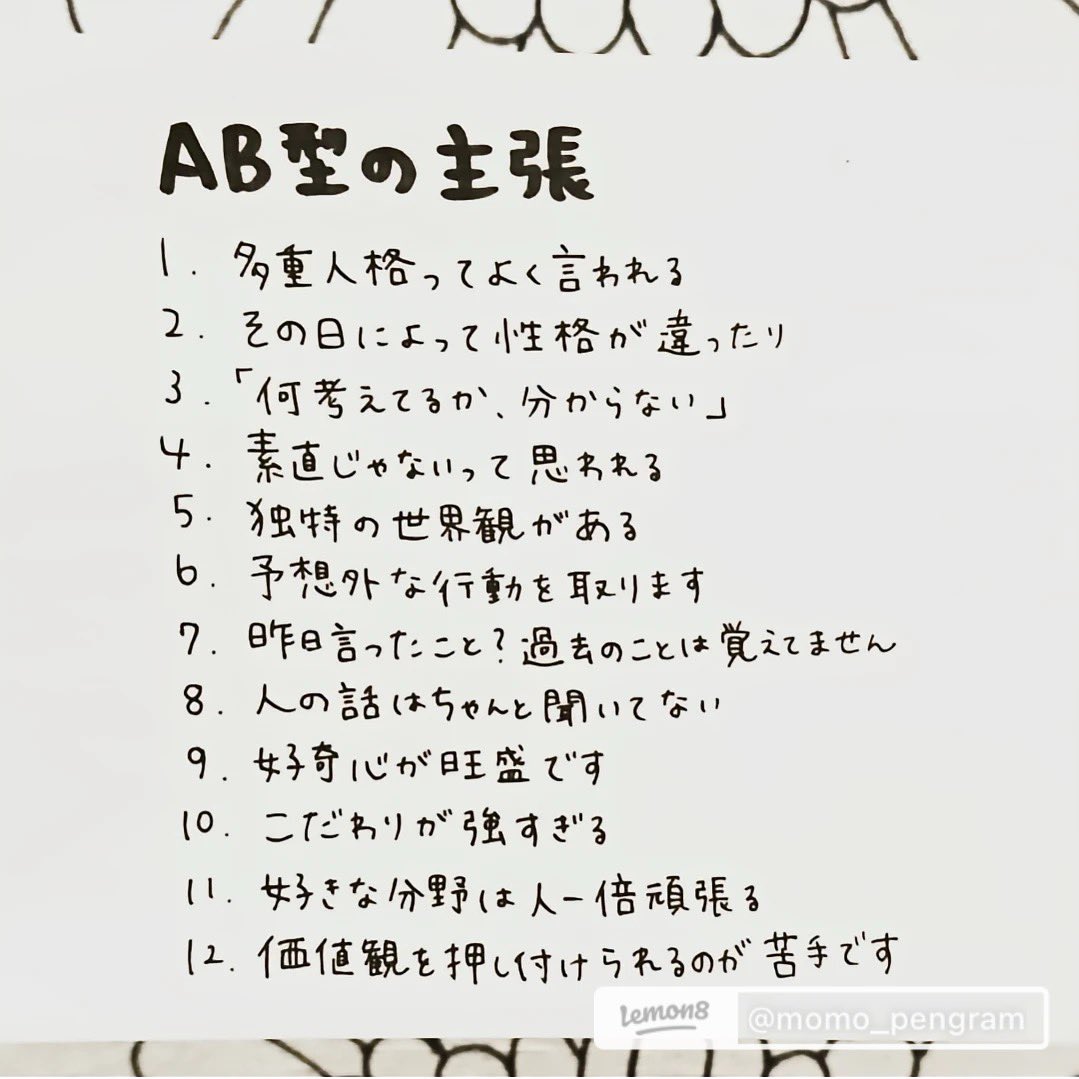 AB型の主張
1. 多重人格ってよく言われる
2. その日によって性格が違ったり
3. 「何考えてるか、分からない」
4. 素直じゃないって思われる
5. 独特の世界観がある
6. 予想外な行動を取ります
7. 昨日言ったこと?過去のことは覚えてません
8. 人の話はちゃんと聞いてない
9. 好奇心が旺盛です
10. こだわりが強すぎる
11. 好きな分野は人一倍頑張る
12. 価値観を押し付けられるのが苦手です
lemon8 @momo_pengram